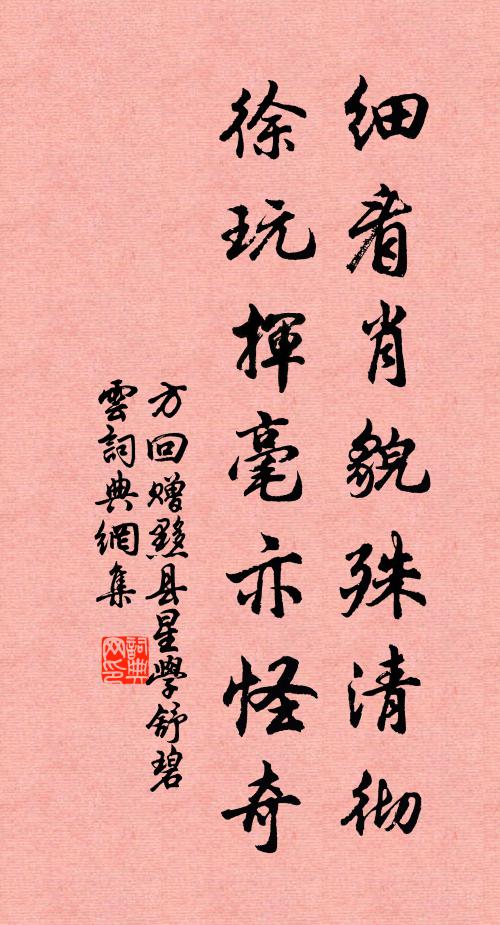 细看肖貌殊清彻
徐玩揮毫亦怪奇
方回赠黟县星學舒碧
雲詞典網集
詞典
网印